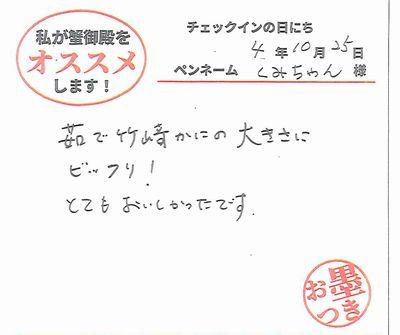 私が蟹御殿を
オススメ
します！
チェックインの日にち
4年10月25日
ペンネーム くみちゃん 様
茹で竹崎かにの大きさに
ビックリ！
とてもおいしかったです。
お墨つき